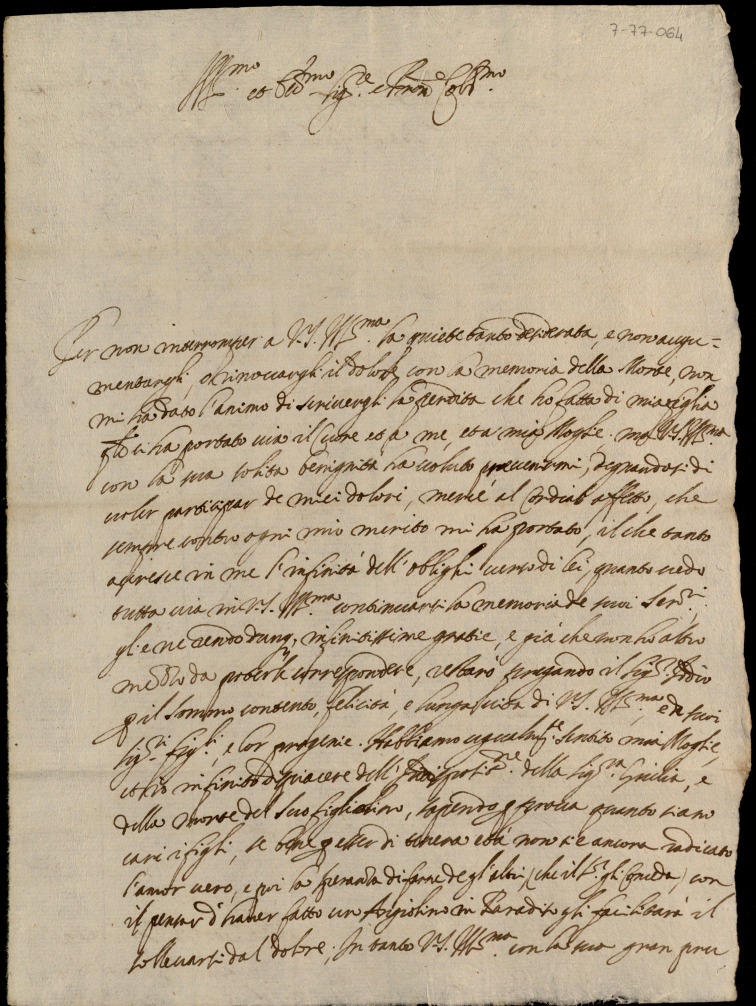 7-77-064
Ill.mo et Ecc.mo Sig.re e Pron.e Col.mo
Per non interromper a V.S. Ill.ma la quiete tanto desiderata, e non augu=
mentargli, o rinovargli il dolore con la memoria della Morte, non
mi ha dato l'animo di scrivergli la perdita che ho fatta di mia figlia
ci ha portato via il Cuore et a me, et a mia Moglie. ma V.S. Ill.ma
con la sua solita benignità ha voluto prevenirmi, degnandosi di
voler participar de miei dolori, mercè al Cordial affetto, che
sempre contro ogni mio merito mi ha portato, il che tanto
acresce in me l'infinità dell'oblighi verso di lei, quanto vedo
tutta via in V.S. Ill.ma continuarsi la memoria de suoi Ser.ri
gl'e ne rendo dunq, infinitissime gratie, e già che non ho altro
modo da poterle correspondere, restarò pregando il Sig.r Iddio
p il sommo contento, felicità, e lunga vita di V.S. Ill.ma, e de suoi
Sig.ri figli, e lor progenie. Habbiamo ugualm.te sentito mia Moglie,
et io infinito dispiacere dell' della Sig.ra Giulia, e
della morte del suo figliolino, sapendo p prova quanto siano
cari i figli, se bene p esser di tenera età non si è ancora radicato
l'amor vero, e poi la speranza di farne degl'altri, (che il S.r gli conceda) con
il pensar d'haver fatto un Angiolino in Paradiso gli facilitarà il
sollevarsi dal dolore, In tanto V.S. Ill.ma con la sua gran pru